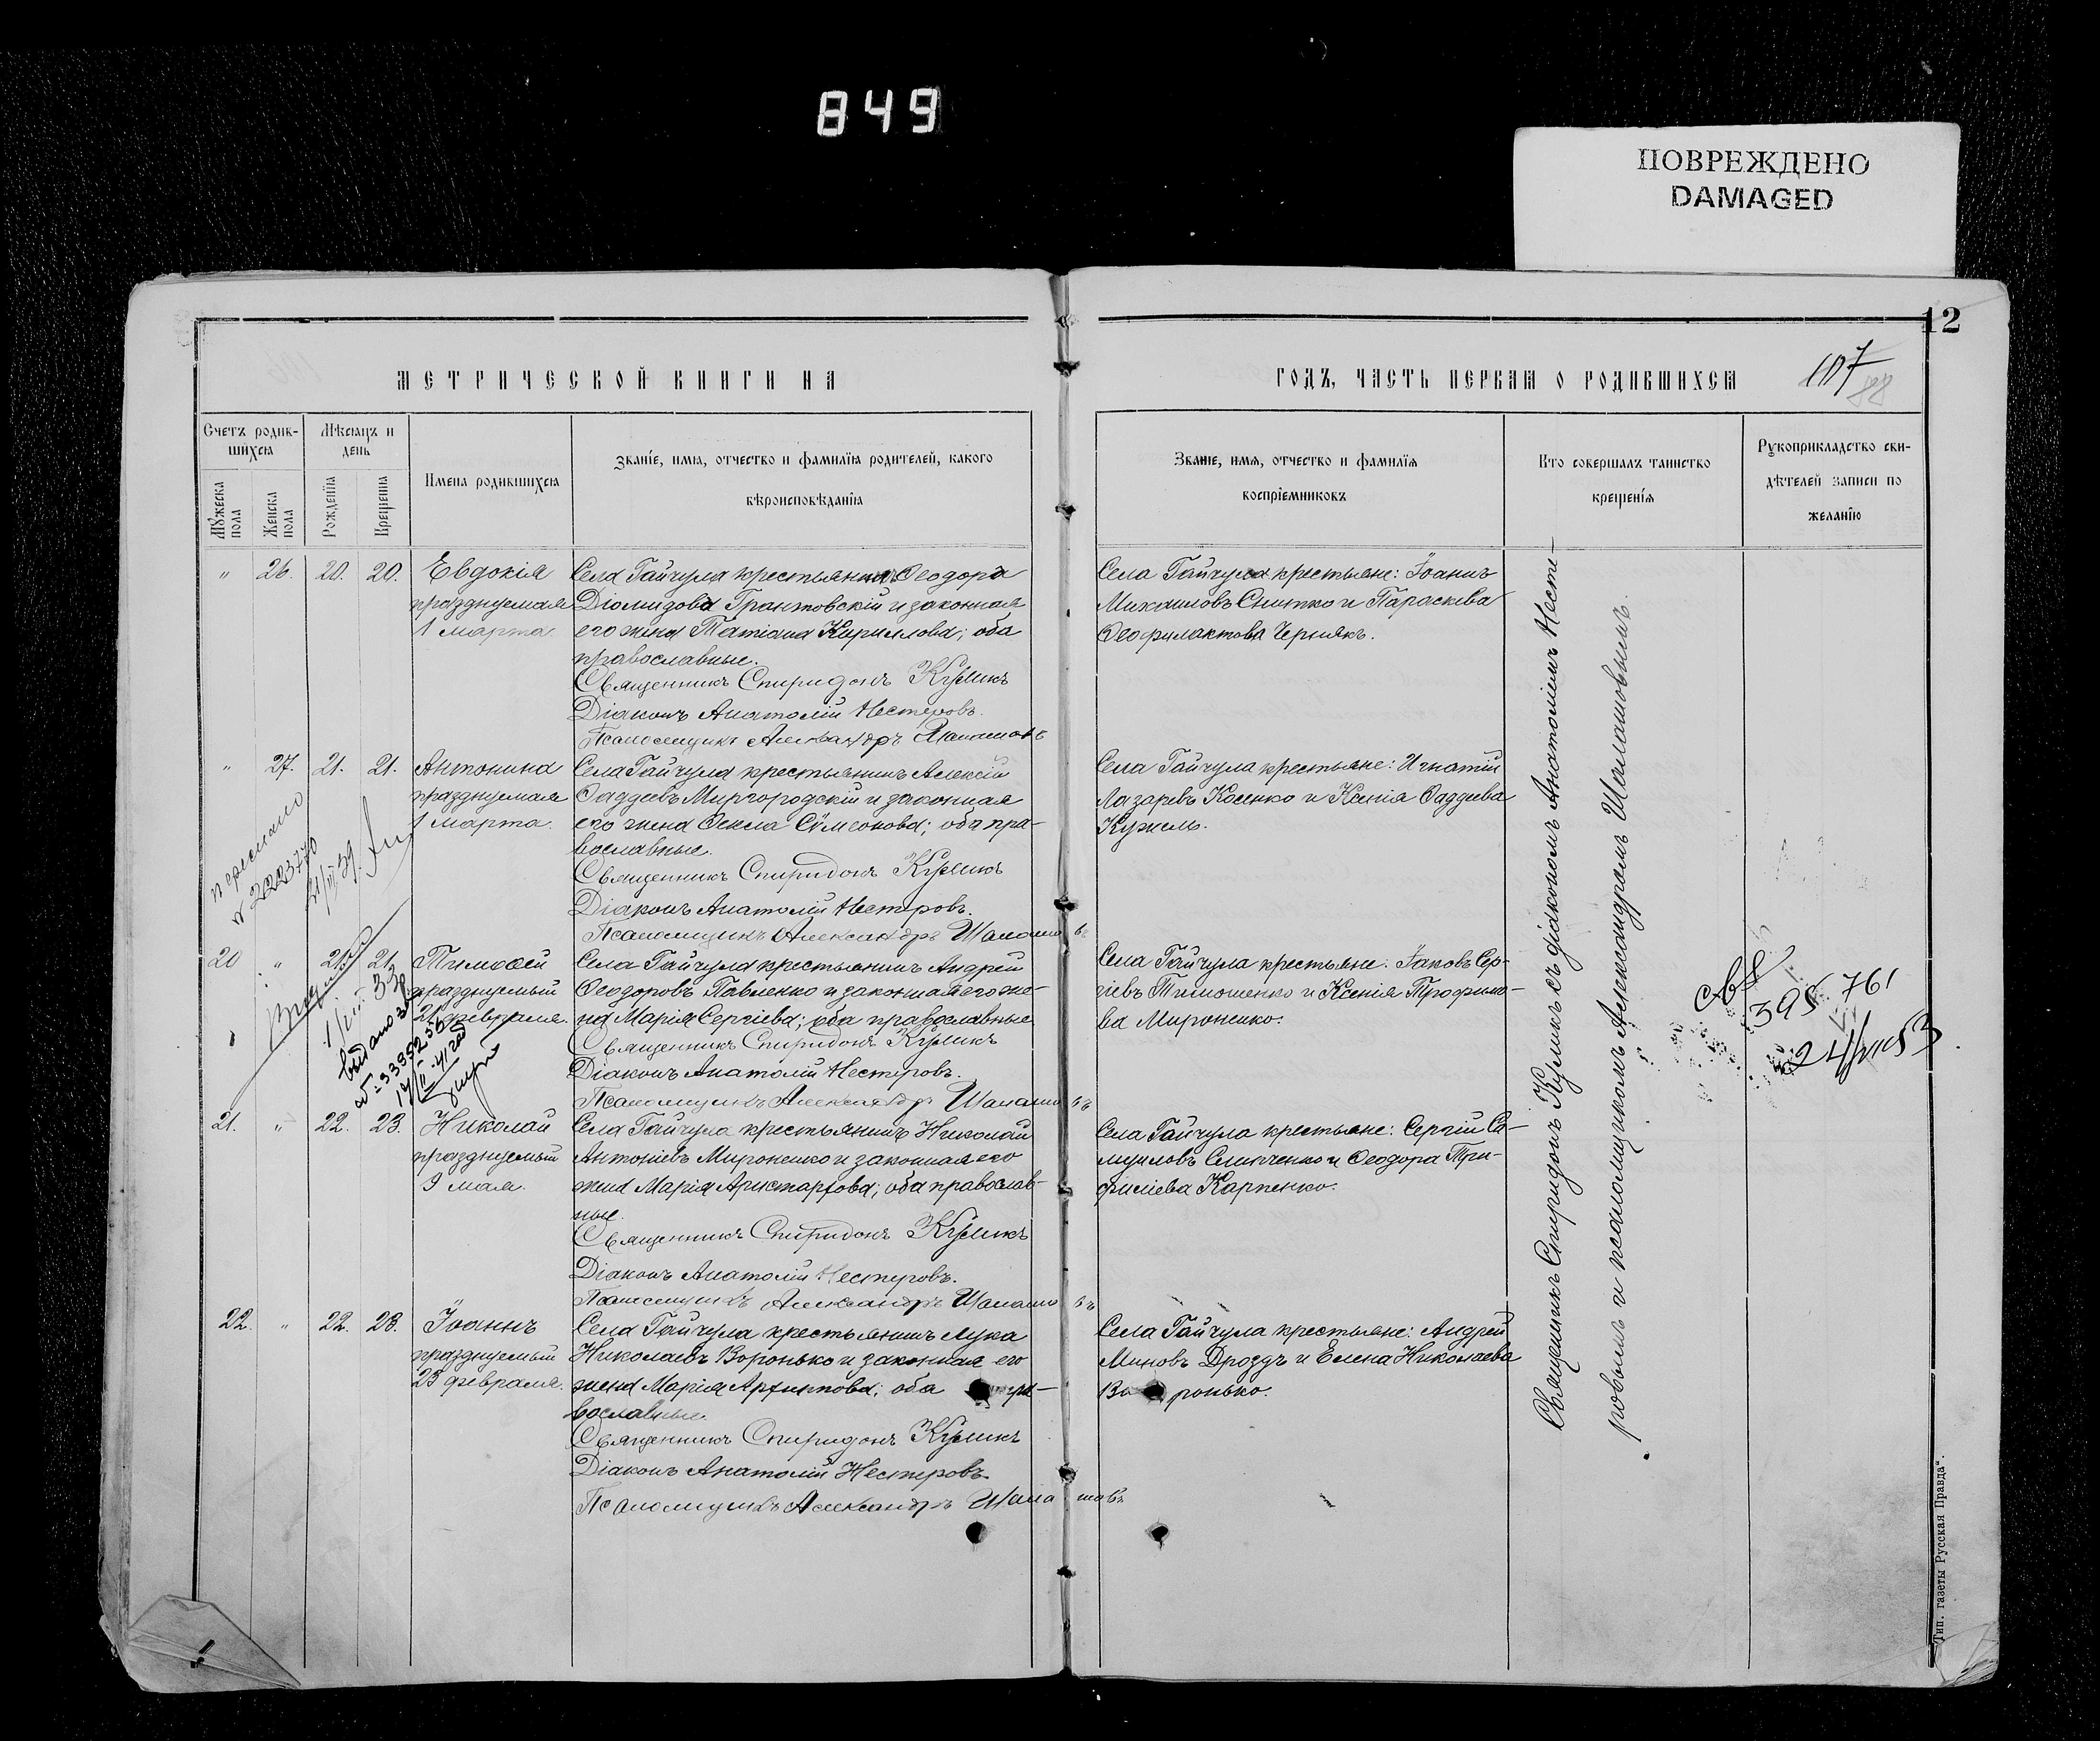 849
ПОВРЕЖДЕНО
DAMAGED
12
МЕТРИЧЕСКОЙ КНИГИ НА
ГОДЪ, ЧАСТЬ ПЕРВАЯ О РОДИВШИХСЯ
107
88
Счетъ родив-
шихся
Мѣсяцъ и
день
Имена родившихся
Званіе, имя, отчество и фамилія родителей, какого
вѣроисповѣданія
Званіе, имя, отчество и фамилія
воспріемниковъ
Кто совершалъ таинство
крещенія
Рукоприкладство сви-
дѣтелей записи по
желанію
Мужеска
пола
Женска
пола
Рожденія
Крещенія
" 26. 20. 20. Евдокія
празднуемая
1 марта.
Села Гайчула крестьянинъ Ѳеодоръ
Діомидовъ Грантовскій и законная
его жена Татіана Кириллова; оба
православные.
Священникъ Спиридонъ Куликъ
Діаконъ Анатолій Нестеровъ.
Псаломщикъ Александръ Шаламовъ
Села Гайчула крестьяне: Іоаннъ
Михаиловъ Снитко и Параскева
Ѳеофилактова Чернякъ.
" 27. 21. 21. Антонина
празднуемая
1 марта.
Села Гайчула крестьянинъ Алексій
Ѳаддеевъ Миргородскій и законная
его жена Ѳекла Сѵмеонова; оба пра-
вославные.
Священникъ Спиридонъ Куликъ
Діаконъ Анатолій Нестеровъ.
Псаломщикъ Александръ Шаламовъ
Села Гайчула крестьяне: Игнатій
Лазаревъ Косенко и Ксенія Ѳаддеева
Кужель.
№ 2223770
20 " 21. 21. Тимоѳей
празднуемый
21 февраля.
Села Гайчула крестьянинъ Андрей
Ѳеодоровъ Павленко и законная его же-
на Марія Сергіева; оба православные
Священникъ Спиридонъ Куликъ
Діаконъ Анатолій Нестеровъ.
Псаломщикъ Александръ Шаламовъ
Села Гайчула крестьяне: Іаковъ Сер-
гіевъ Тимошенко и Ксенія Трофимо-
ва Мироненко.
выдано
св
395 761
24/VII 53
21. " 22. 23. Николай
празднуемый
9 мая.
Села Гайчула крестьянинъ Николай
Антоніевъ Мироненко и законная его
жена Марія Аристархова; оба православ-
ные.
Священникъ Спиридонъ Куликъ
Діаконъ Анатолій Нестеровъ.
Псаломщикъ Александръ Шаламовъ
Села Гайчула крестьяне: Сергій Са-
муиловъ Слипченко и Ѳеодора Три-
филіева Карпенко.
22. " 22. 23. Іоаннъ
празднуемый
23 февраля.
Села Гайчула крестьянинъ Лука
Николаевъ Воронько и законная его
жена Марія Архиппова; оба пра-
вославные.
Священникъ Спиридонъ Куликъ
Діаконъ Анатолій Нестеровъ.
Псаломщикъ Александръ Шаламовъ
Села Гайчула крестьяне: Андрей
Миновъ Дроздъ и Елена Николаева
Воронько.
Священникъ Спиридонъ Куликъ съ діакономъ Анатоліемъ Несте-
ровымъ и псаломщикомъ Александромъ Шаламовымъ.
Тип. газеты „Русская Правда".